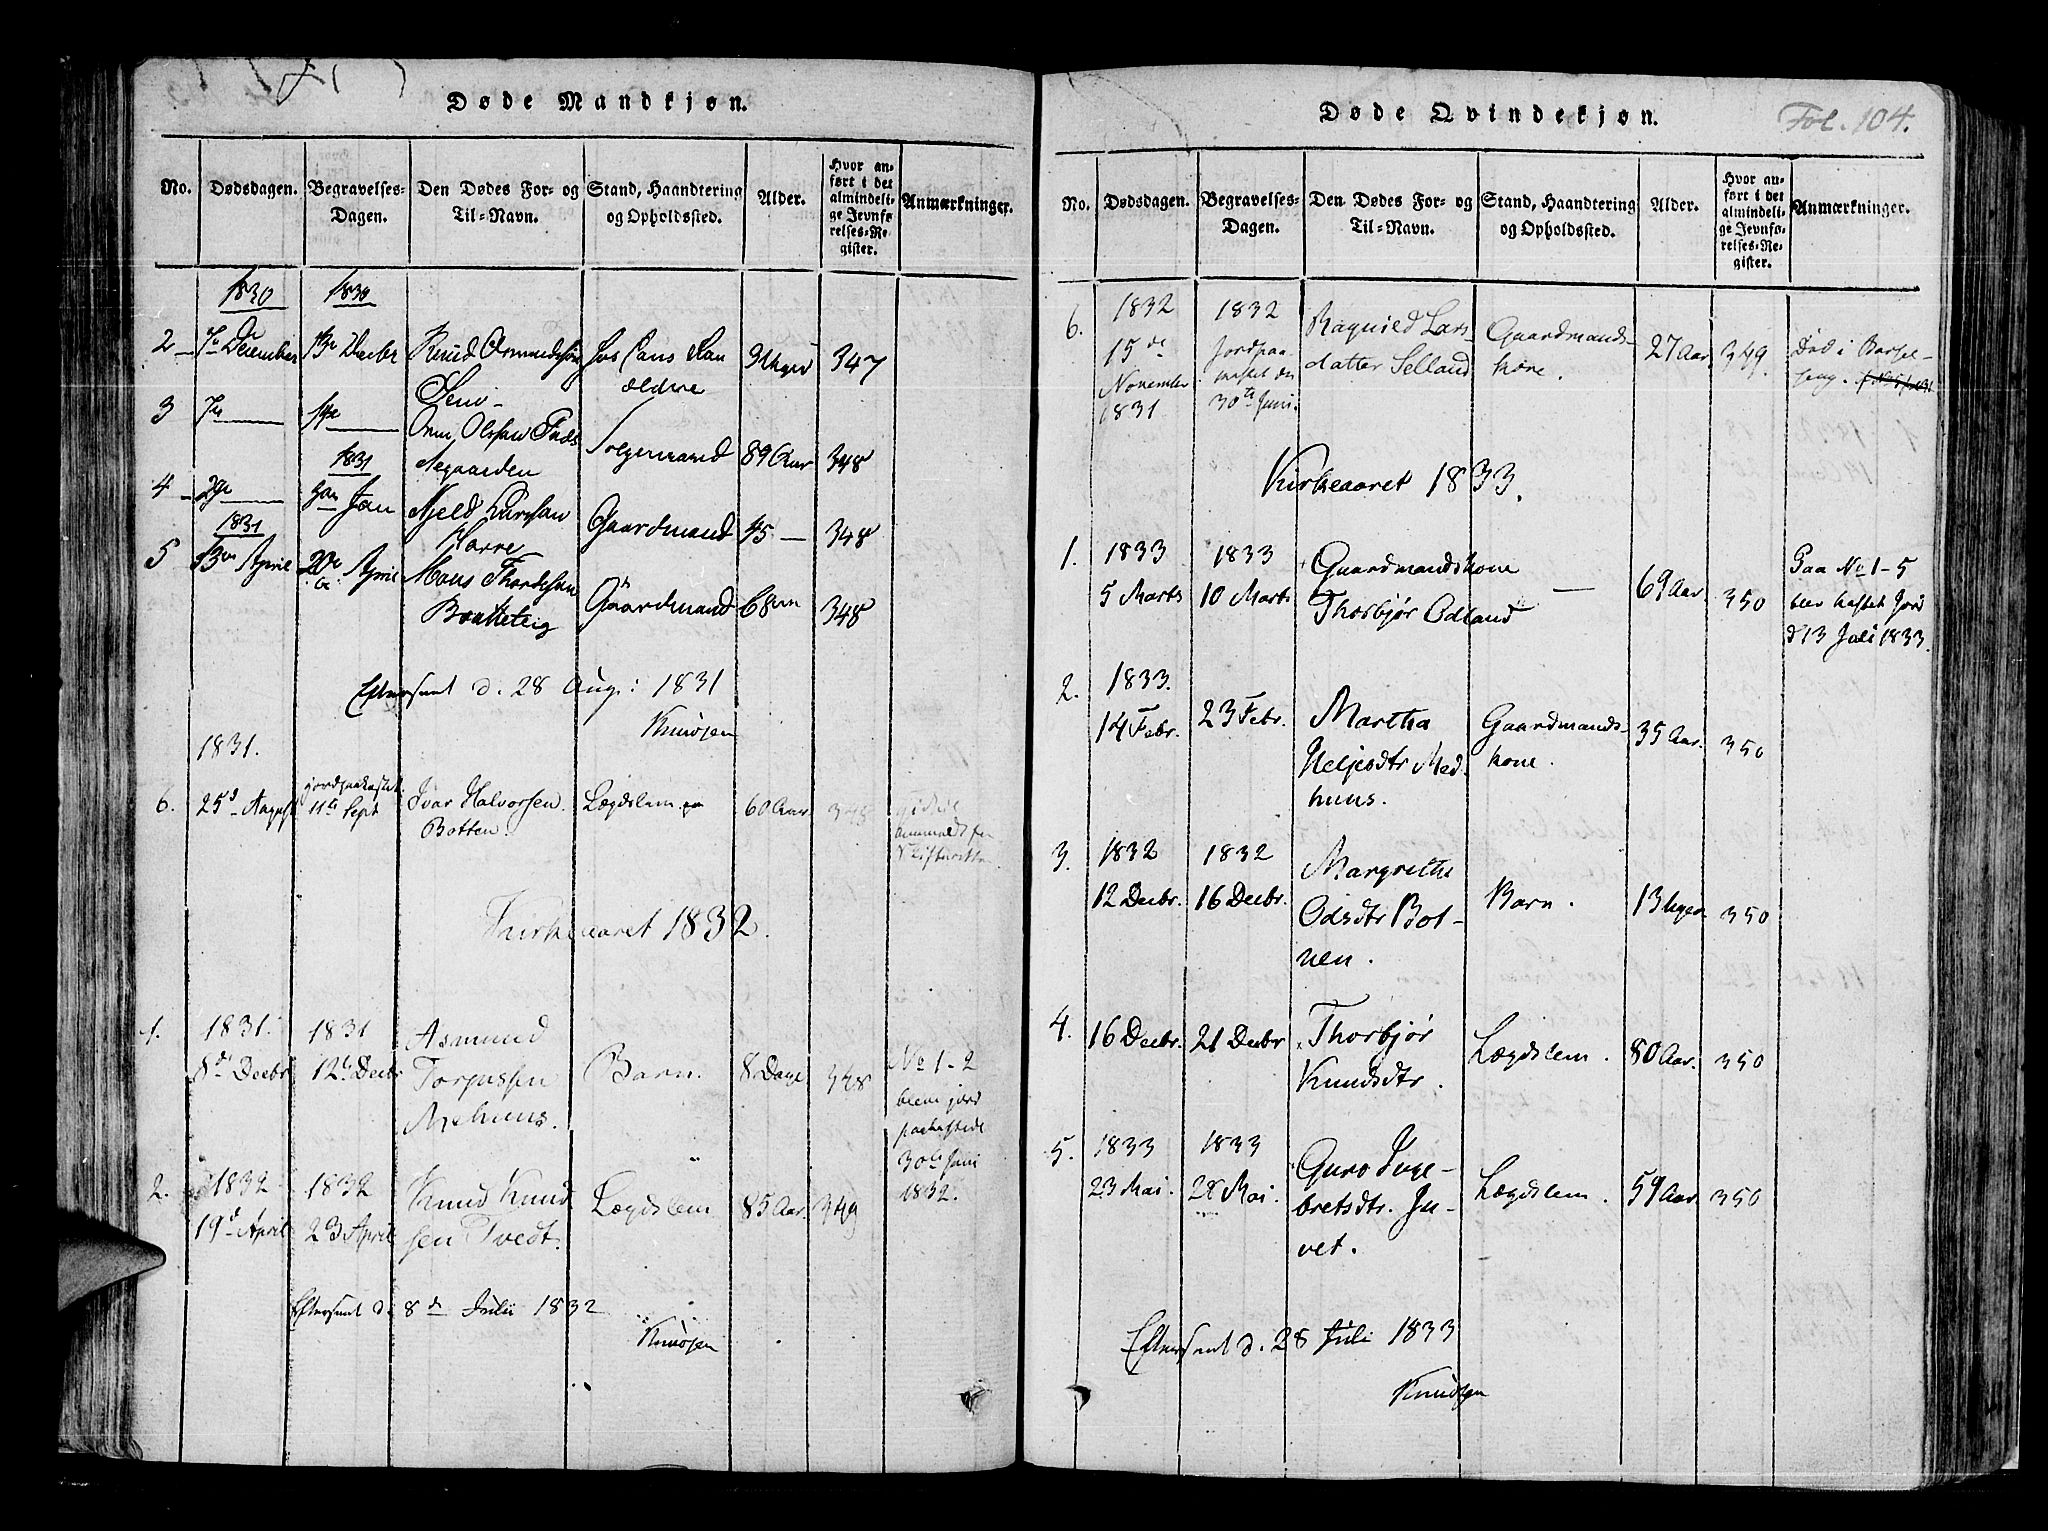 Døde Mandkjøn.
No. Dødsdagen. Begravelses-Dagen. Den Dødes For- og Til-Navn. Stand, Haandtering og Opholdssted. Alder. Hvor anført i det almindelige Jevnførelses-Register. Anmærkninger.
1830 1830
2 7de December 13de Decbr Knud Ormundsøn 347
ældre
3
Orm Olssøn
1831
89 Aar 348
4 9de Jan Kjeld
1831 Gaardmand 45 — 348
5 13de April 20de April Mons Thordssøn
Bratteteig Gaardmand 68 348
Efterseet d. 28 Aug: 1831
Knudsen
1831.
jordpaakastet
6. 25d August 11te Sept Ivar Halvorsen Lægdslem 60 Aar 348
Botten.
anmeldt for
Skifteretten
Kirkeaaret 1832.
1. 1831. 1831 Asmund
8de Decbr 12te Decbr Torgussen Barn. 8 Dage 348 No 1-2
Mehuus. bleve jord
paakastede
30te Juni
1832.
2. 1832 1832 Knud Knud
19d April 23 April sen Tvedt. Lægdslem 85 Aar. 349
Efterseet d. 8d Julii 1832
Knudsen
Døde Qvindekjøn.
Fol. 104.
No. Dødsdagen. Begravelses-Dagen. Den Dødes For- og Til-Navn. Stand, Haandtering og Opholdssted. Alder. Hvor anført i det almindelige Jevnførelses-Register. Anmærkninger.
6. 1832 1832 Ragnild Lars Gaardmands-
15de Jordpaa- datter Selland kone. 27 Aar. 349. Død i Barsel-
November kastet den seng.
1831 30te Juni.
Kirkeaaret 1833.
1. 1833 1833 Gaardmandskone Paa No 1-5
5 Marts 10 Marts Thorbjør Odland — 69 Aar 350 blev kastet Jord
d 13 Juli 1833.
2. 1833.
14 Febr. 23 Febr. Martha Gaardmands- 35 Aar. 350
Heljesdtr Med- kone.
huus.
3. 1832 1832 Margrethe
12 Decbr. 16 Decbr. Odsdtr Bot- Barn. 13 Uger 350
nen.
4. 16 Decbr. 21 Decbr Thorbjør Lægdslem. 80 Aar. 350
Knudsdtr.
5. 1833 1833 Guro Inge-
23 Mai. 28 Mai. bretsdtr. Ju- Lægdslem. 59 Aar. 350
vet.
Efterseet d. 28 Juli 1833
Knudsen